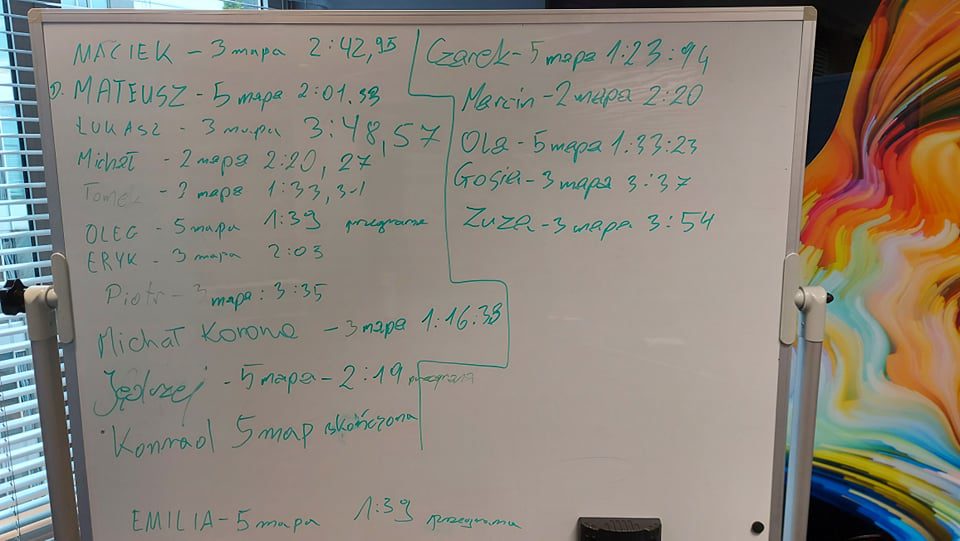 MACIEK - 3 mapa 2:42,95
MATEUSZ - 5 mapa 2:01.33
ŁUKASZ - 3 mapa 3:48,57
Michał - 2 mapa 2:20,27
Tomek - 3 mapa 1:33,31
OLEG - 5 mapa 1:39 przegrane
ERYK - 3 mapa 2:03
Piotr - 3 mapa: 3:35
Michał Korona - 3 mapa 1:16:38
Jędrzej - 5 mapa - 2:19
Konrad 5 map skończona
EMILIA - 5 mapa 1:39 przegrana
Czarek - 5 mapa 1:23:94
Marcin - 2 mapa 2:20
Ola - 5 mapa 1:33:23
Gosia - 3 mapa 3:37
Zuza - 3 mapa 3:54